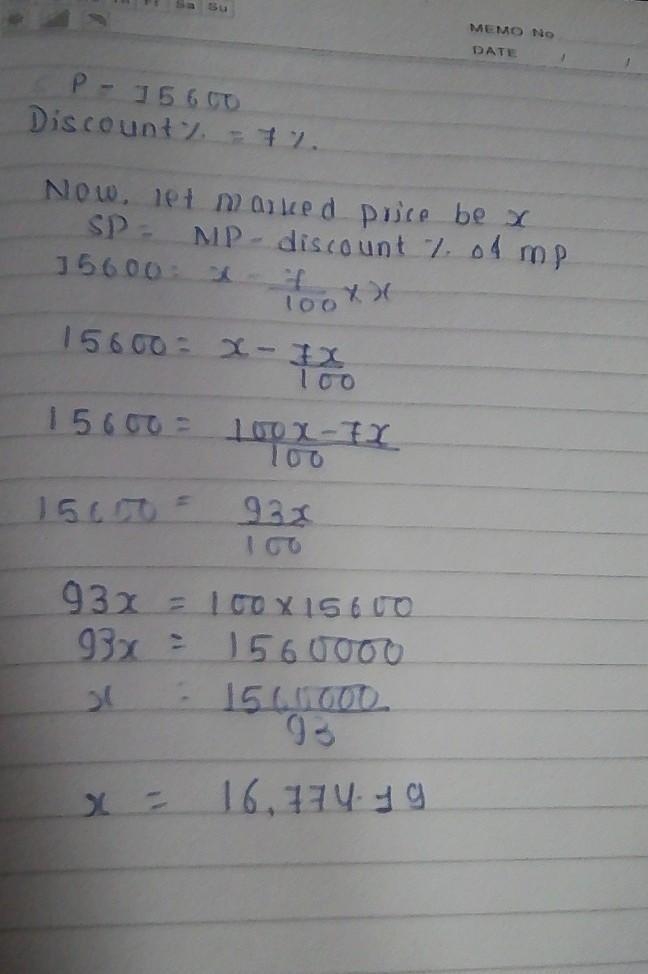 Sa Su
MEMO No
DATE / /
P - 15600
Discount% = 7%.
Now, let marked price be x
SP = MP - discount % of mp
15600 = x - 7/100 × x
15600 = x - 7x/100
15600 = 100x - 7x/100
15600 = 93x/100
93x = 100 × 15600
93x = 1560000
x = 1560000/93
x = 16,774.19